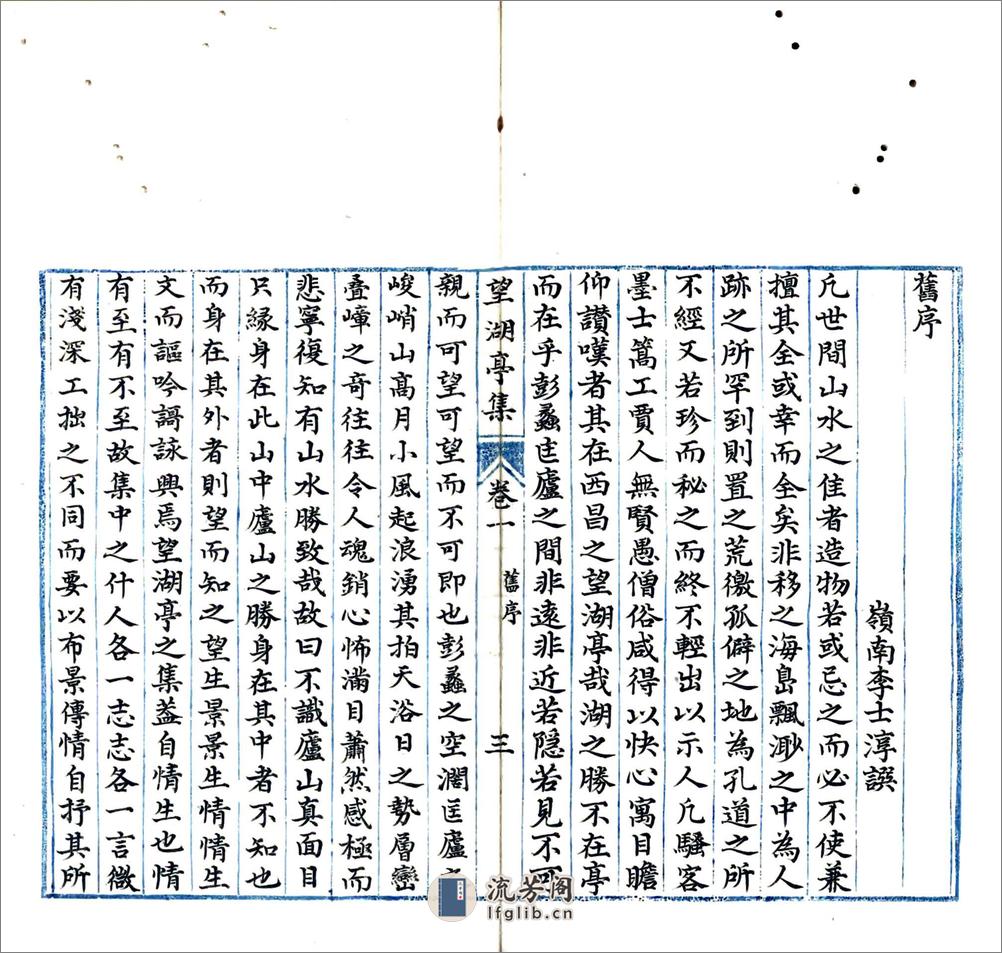 舊序
嶺南李士淳譔
凢世間山水之佳者造物若或忌之而必不使兼
擅其全或幸而全矣非移之海島飄渺之中為人
跡之所罕到則置之荒徼孤僻之地為孔道之所
不經又若珍而秘之而終不輕出以示人凢騷客
墨士篙工賈人無賢愚僧俗咸得以快心寓目瞻
仰讚嘆者其在西昌之望湖亭哉湖之勝不在亭
而在乎彭蠡匡廬之間非遠非近若隱若見不可
望湖亭集 卷一 舊序 三
親而可望可望而不可即也彭蠡之空濶匡廬之
峻峭山高月小風起浪湧其拍天浴日之勢層巒
疊嶂之奇往往令人魂銷心怖滿目蕭然感極而
悲寧復知有山水勝致哉故曰不識廬山真面目
只緣身在此山中廬山之勝身在其中者不知也
而身在其外者則望而知之望生景景生情情生
文而謳吟謌詠興焉望湖亭之集葢自情生也情
有至有不至故集中之什人各一志志各一言微
有淺深工拙之不同而要以布景傳情自抒其所
流芳阁
lfglib.cn